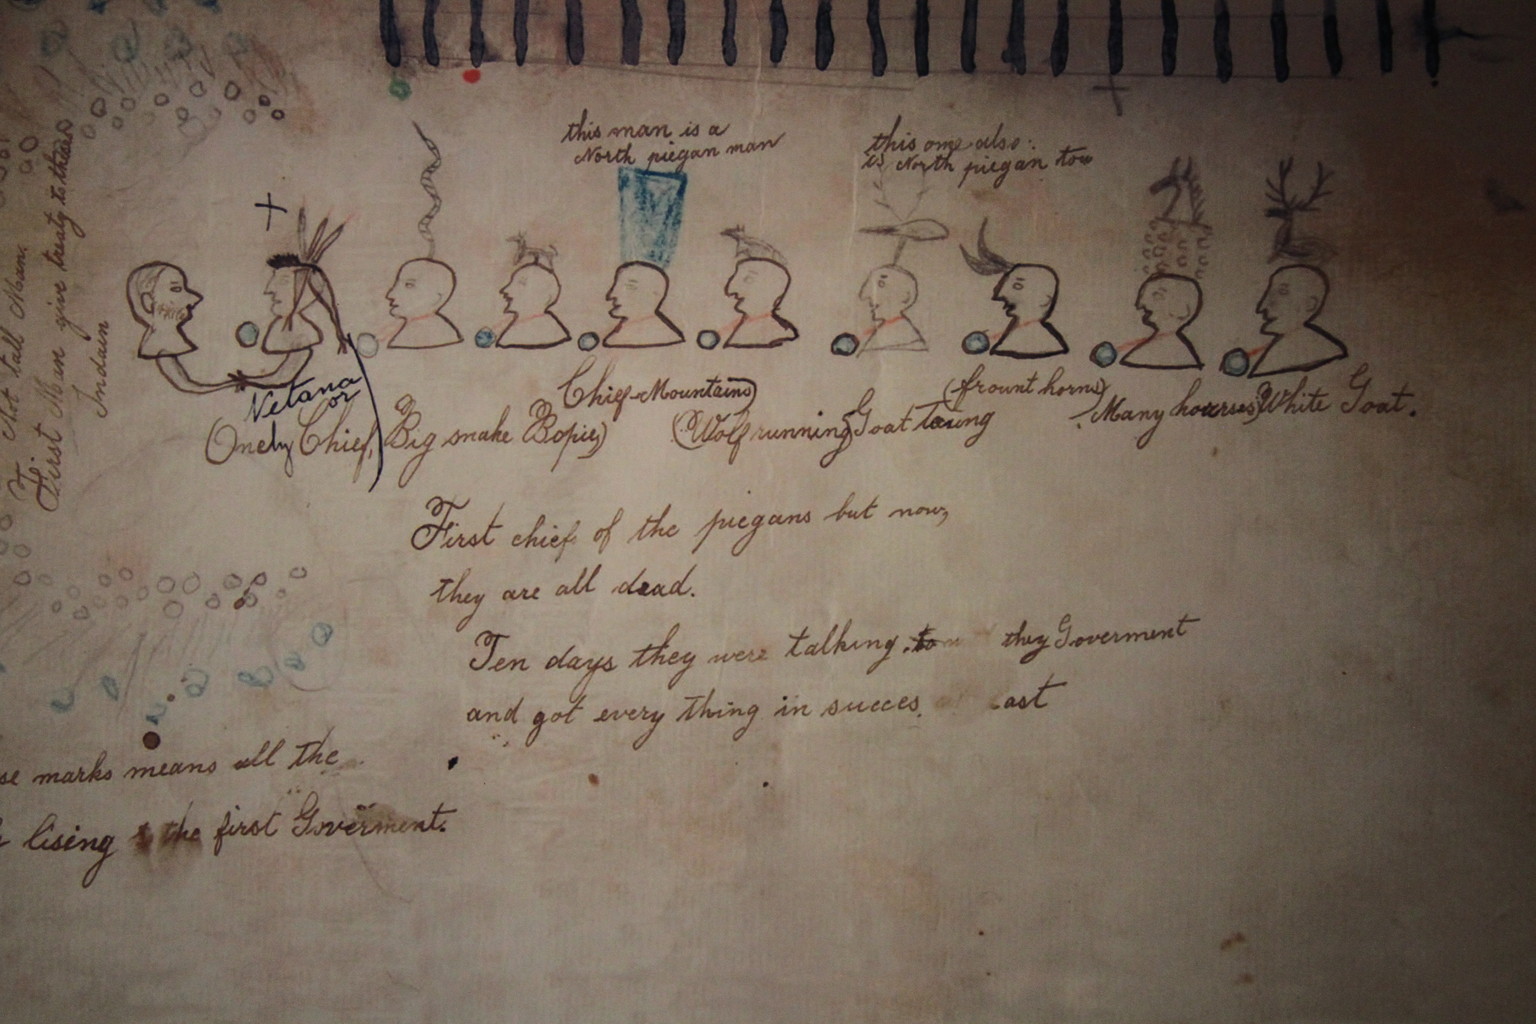 this man is a
North piegan man
this one also
is North piegan too
That tall Mean
First Men give treaty to these
Indain
Netana
or
(Onely Chief,
Big snake Bopie)
Chief Mountains)
(Wolf running
Goat
(frount horns)
Many hourses)
White Goat.
First chief of the piegans but now,
they are all dead.
Ten days they were talking. to they Goverment
and got every thing in succes
se marks means all the
lising the first Goverment.